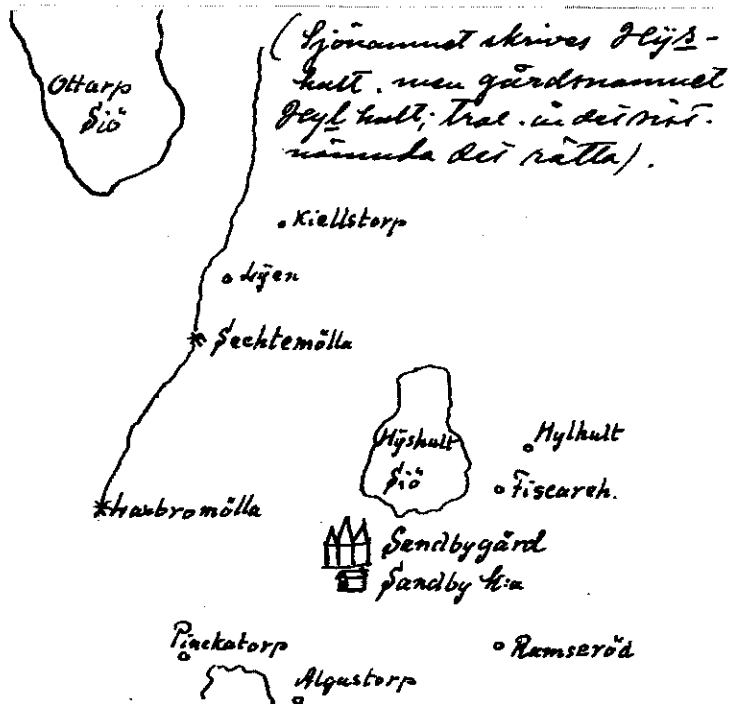 (Sjönamnet skrives Hÿs-
hult. men gårdsnamnet
Hylhult; trol. är det sist-
nämnda det rätta).
Ottarp
Siö
Kiellstorp
Lÿen
Sechtemölla
Hÿshult
Siö
Hylhult
Fiscareh.
Laxbromölla
Sandbygård
Sandby K:a
Pinckatorp
Ramseröd
Algustorp